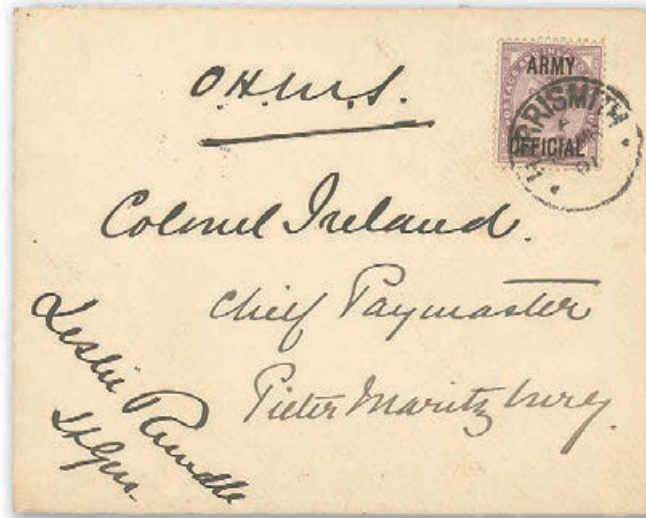 O.H.M.S.
ARMY
OFFICIAL
HARRISMITH
01
Colonel Ireland.
Chief Paymaster
Pieter Maritzburg.
Leslie Rundle
Lt Gen.